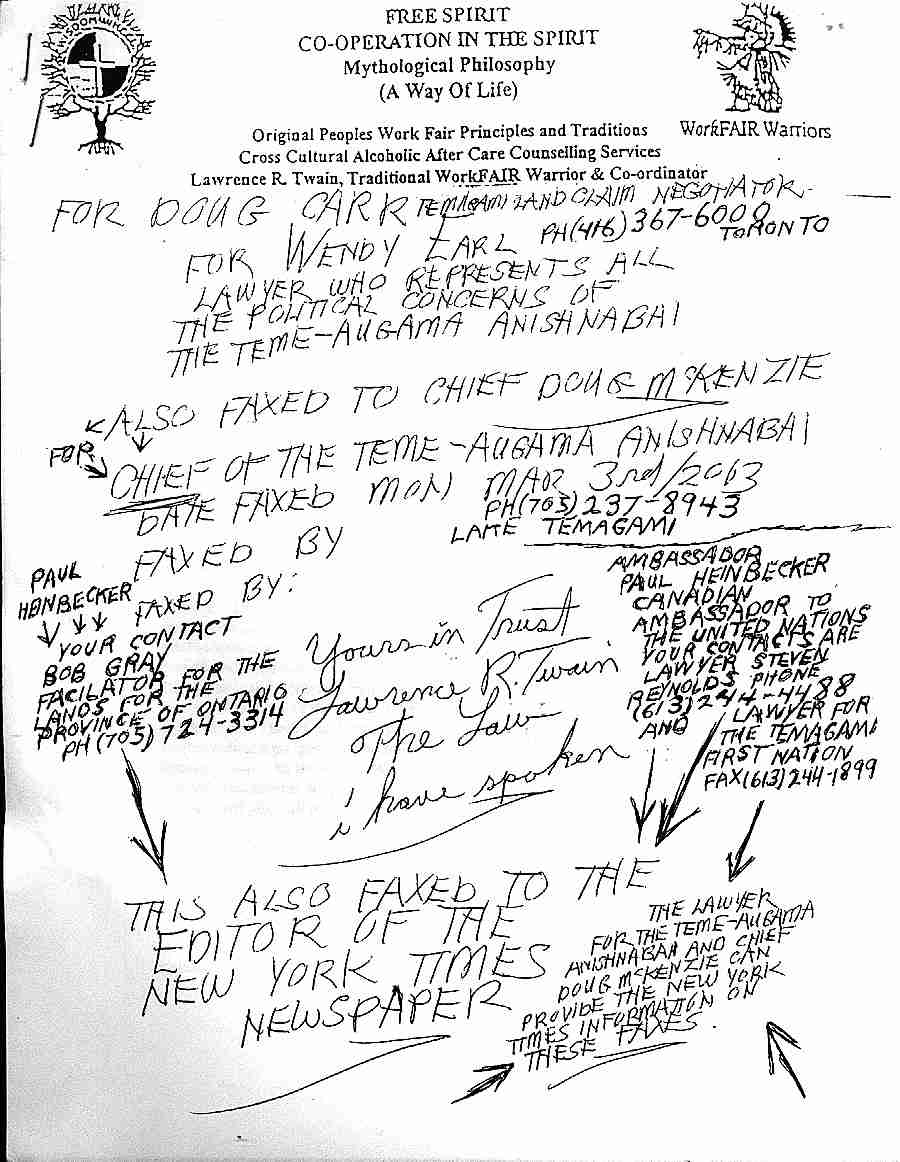 WISDOMWK
FREE SPIRIT
CO-OPERATION IN THE SPIRIT
Mythological Philosophy
(A Way Of Life)
WorkFAIR Warriors
Original Peoples Work Fair Principles and Traditions
Cross Cultural Alcoholic After Care Counselling Services
Lawrence R. Twain, Traditional WorkFAIR Warrior & Co-ordinator
FOR DOUG CARR TEMAGAMI LAND CLAIM NEGOTIATOR
PH (416) 367-6000
TORONTO
FOR WENDY EARL
LAWYER WHO REPRESENTS ALL
THE POLITICAL CONCERNS OF
THE TEME-AUGAMA ANISHNABAI
ALSO FAXED TO CHIEF DOUG McKENZIE
FOR
CHIEF OF THE TEME-AUGAMA ANISHNABAI
DATE FAXED MON MAR 3rd/2003
PH (705) 237-8943
LAKE TEMAGAMI
FAXED BY
FAXED BY:
PAUL
HEINBECKER
YOUR CONTACT
BOB GRAY
FACILATOR FOR THE
LANDS FOR THE
PROVINCE OF ONTARIO
PH (705) 724-3314
Yours in Trust
Lawrence R. Twain
The Law
i have spoken
AMBASSADOR
PAUL HEINBECKER
CANADIAN
AMBASSADOR TO
THE UNITED NATIONS
YOUR CONTACTS ARE
LAWYER STEVEN
REYNOLDS PHONE
(613) 244-4488
AND
LAWYER FOR
THE TEMAGAMI
FIRST NATION
FAX (613) 244-1899
THIS ALSO FAXED TO THE
EDITOR OF THE
NEW YORK TIMES
NEWSPAPER
THE LAWYER
FOR THE TEME-AUGAMA
ANISHNABAI AND CHIEF
DOUG McKENZIE CAN
PROVIDE THE NEW YORK
TIMES INFORMATION ON
THESE FAXES.